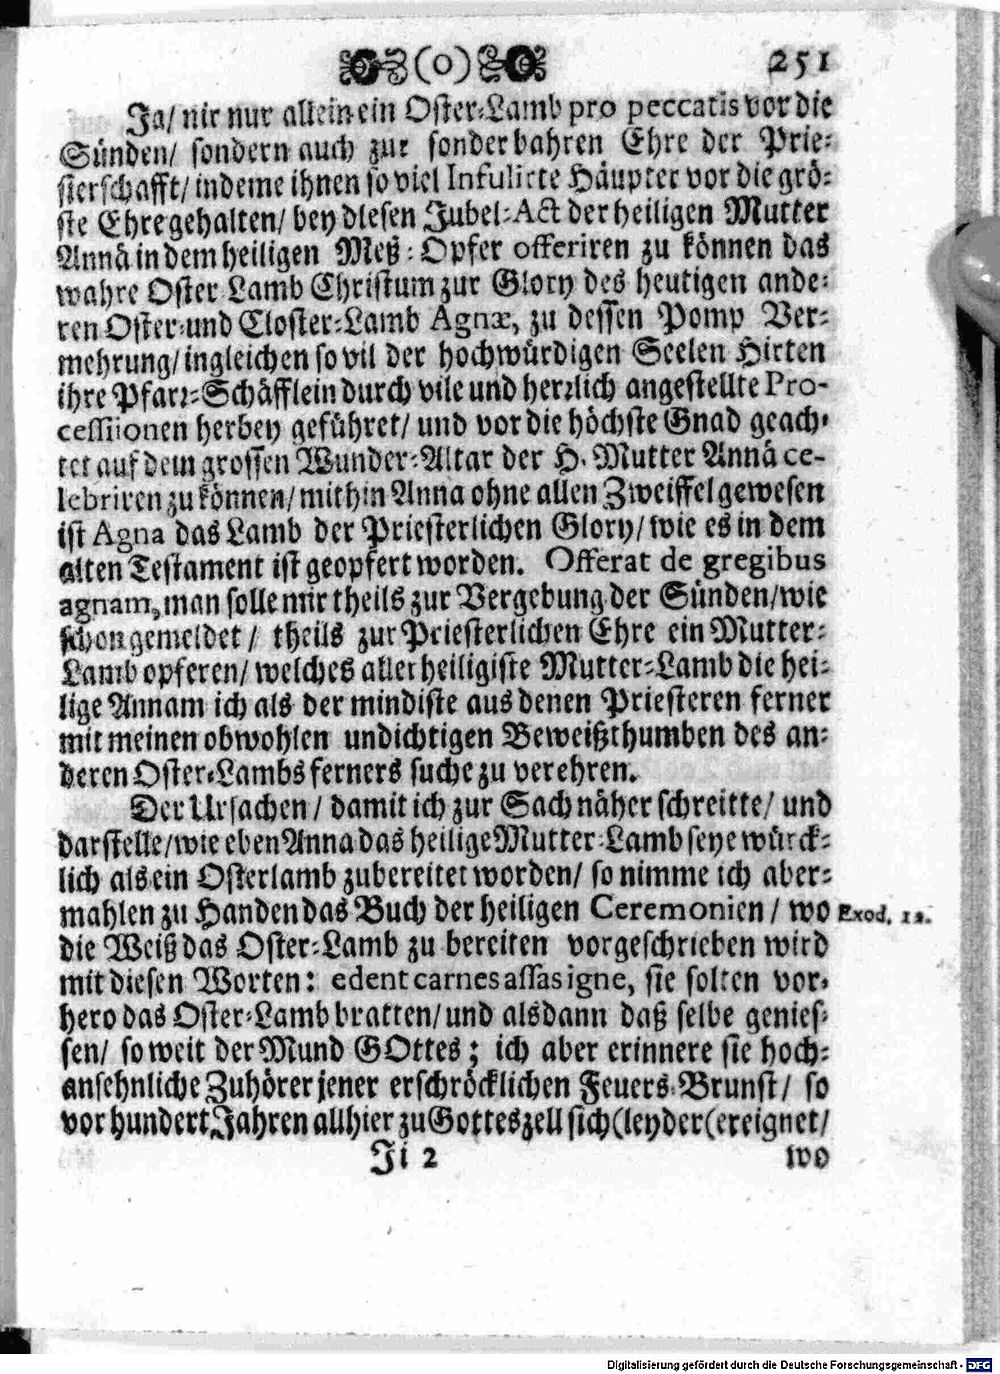 (o) 251
Ja/ nit nur allein ein Oster-Lamb pro peccatis vor die
Sünden/ sondern auch zur sonderbahren Ehre der Prie-
sterschafft/ indeme ihnen so viel Infulirte Häupter vor die grö-
ste Ehre gehalten/ bey diesen Jubel-Act der heiligen Mutter
Annä in dem heiligen Meß-Opfer offeriren zu können das
wahre Oster Lamb Christum zur Glory des heutigen ande-
ren Oster-und Closter-Lamb Agnæ, zu dessen Pomp Ver-
mehrung/ ingleichen so vil der hochwürdigen Seelen Hirten
ihre Pfarr-Schäfflein durch vile und herrlich angestellte Pro-
cessiionen herbey geführet/ und vor die höchste Gnad geach-
tet auf dem grossen Wunder-Altar der H. Mutter Annä ce-
lebriren zu können/ mithin Anna ohne allen Zweiffel gewesen
ist Agna das Lamb der Priesterlichen Glory/ wie es in dem
alten Testament ist geopfert worden. Offerat de gregibus
agnam, man solle mir theils zur Vergebung der Sünden/ wie
schon gemeldet/ theils zur Priesterlichen Ehre ein Mutter-
Lamb opferen/ welches allerheiligiste Mutter-Lamb die hei-
lige Annam ich als der mindiste aus denen Priesteren ferner
mit meinen obwohlen undichtigen Beweißthumben des an-
deren Oster-Lambs ferners suche zu verehren.
Der Ursachen/ damit ich zur Sach näher schreitte/ und
darstelle/ wie eben Anna das heilige Mutter-Lamb seye würck-
lich als ein Osterlamb zubereitet worden/ so nimme ich aber-
mahlen zu Handen das Buch der heiligen Ceremonien/ wo Exod. 12.
die Weiß das Oster-Lamb zu bereiten vorgeschrieben wird
mit diesen Worten: edent carnes assas igne, sie solten vor-
hero das Oster-Lamb bratten/ und alsdann daß selbe genies-
sen/ so weit der Mund GOttes; ich aber erinnere sie hoch-
ansehnliche Zuhörer jener erschröcklichen Feuers-Brunst/ so
vor hundert Jahren allhier zu Gotteszell sich (leyder( ereignet/
Ji 2 wo
Digitalisierung gefördert durch die Deutsche Forschungsgemeinschaft - DFG